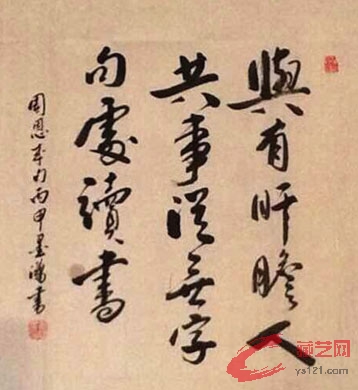 與有肝膽人
共事從無字
句處讀書
周恩來句丙申墨書
藏艺网
ys121.com